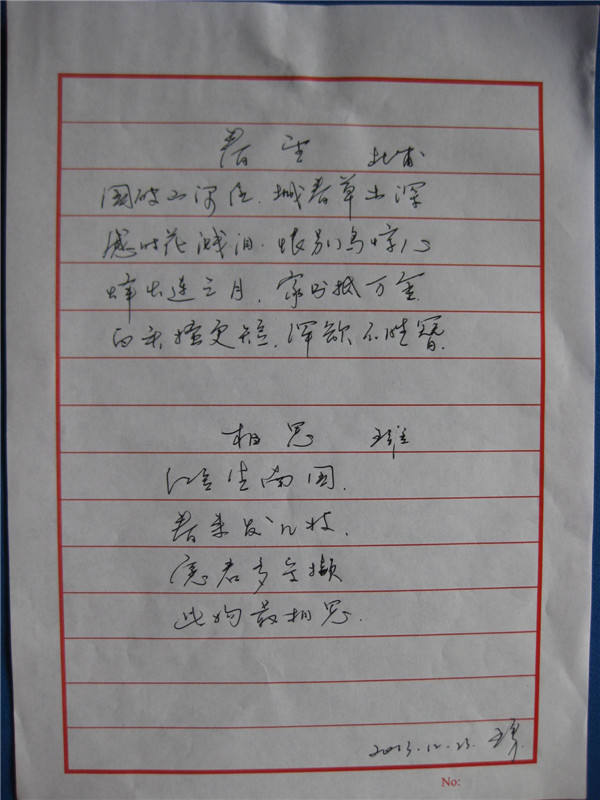 春望 杜甫
国破山河在.城春草木深
感时花溅泪.恨别鸟惊心
烽火连三月.家书抵万金
白头搔更短.浑欲不胜簪.
相思 王维
红豆生南国.
春来发几枝.
愿君多采撷
此物最相思.
2013.12.23.
No: